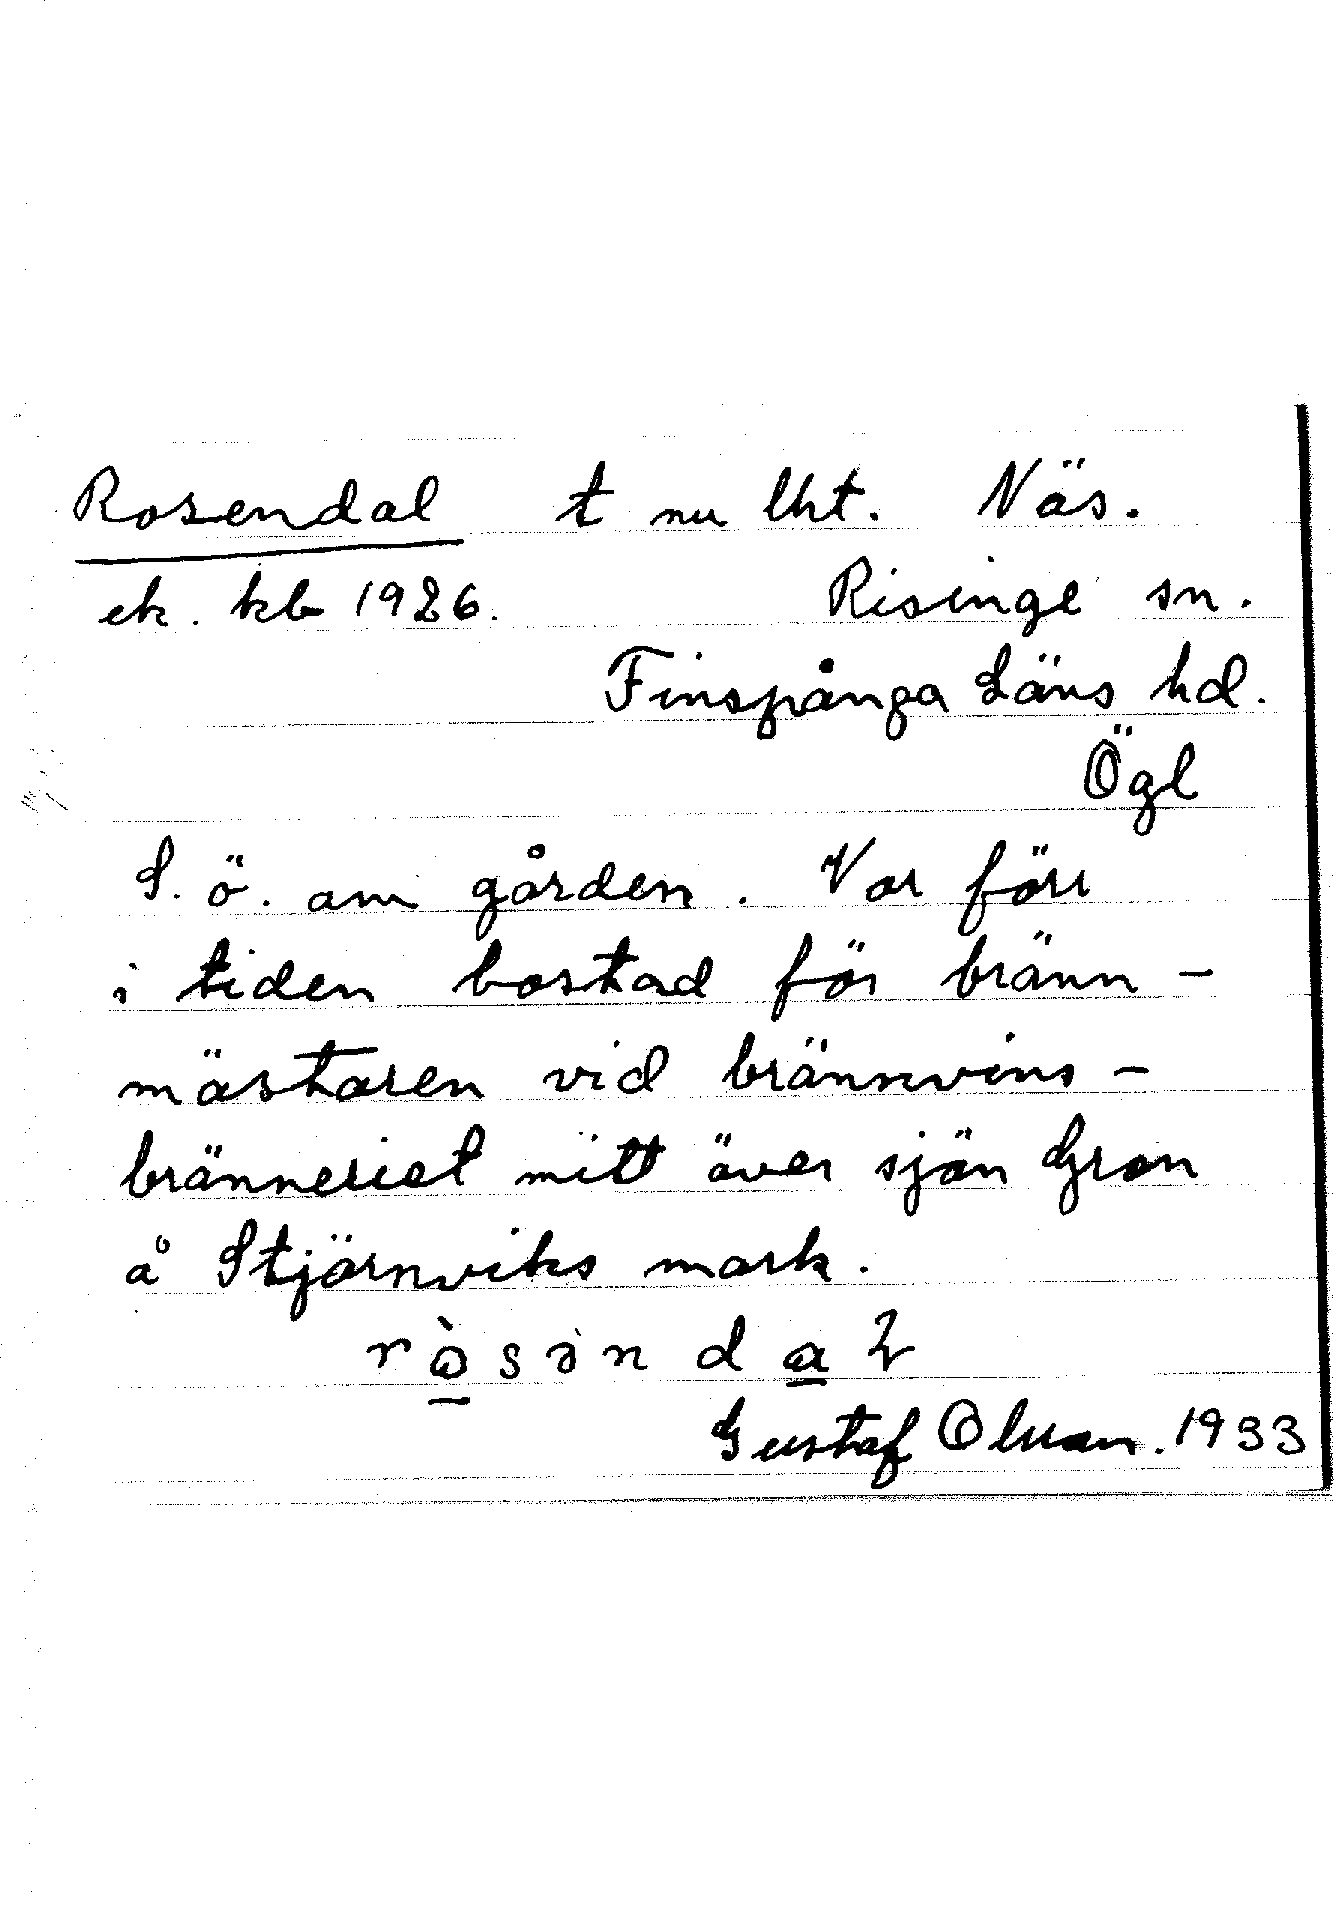 Rosendal t nu lht. Näs.
ek. kb 1926. Risinge sn.
Finspånga Läns hd.
Ögl
S. ö. om gården. Var förr
i tiden bostad för bränn-
mästaren vid brännvins-
bränneriet mitt över sjön Gron
å Stjärnviks mark.
rò̲sànda̲ɬ
Gustaf Olsson. 1933